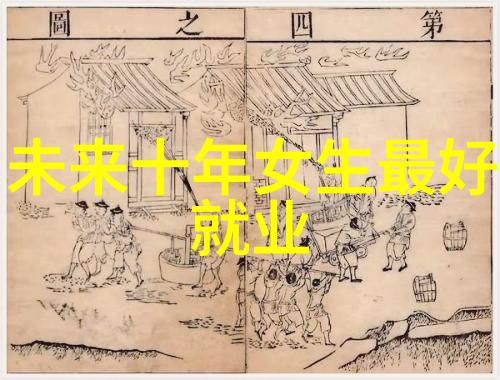 第四之圖
未来十年女生最好
就业